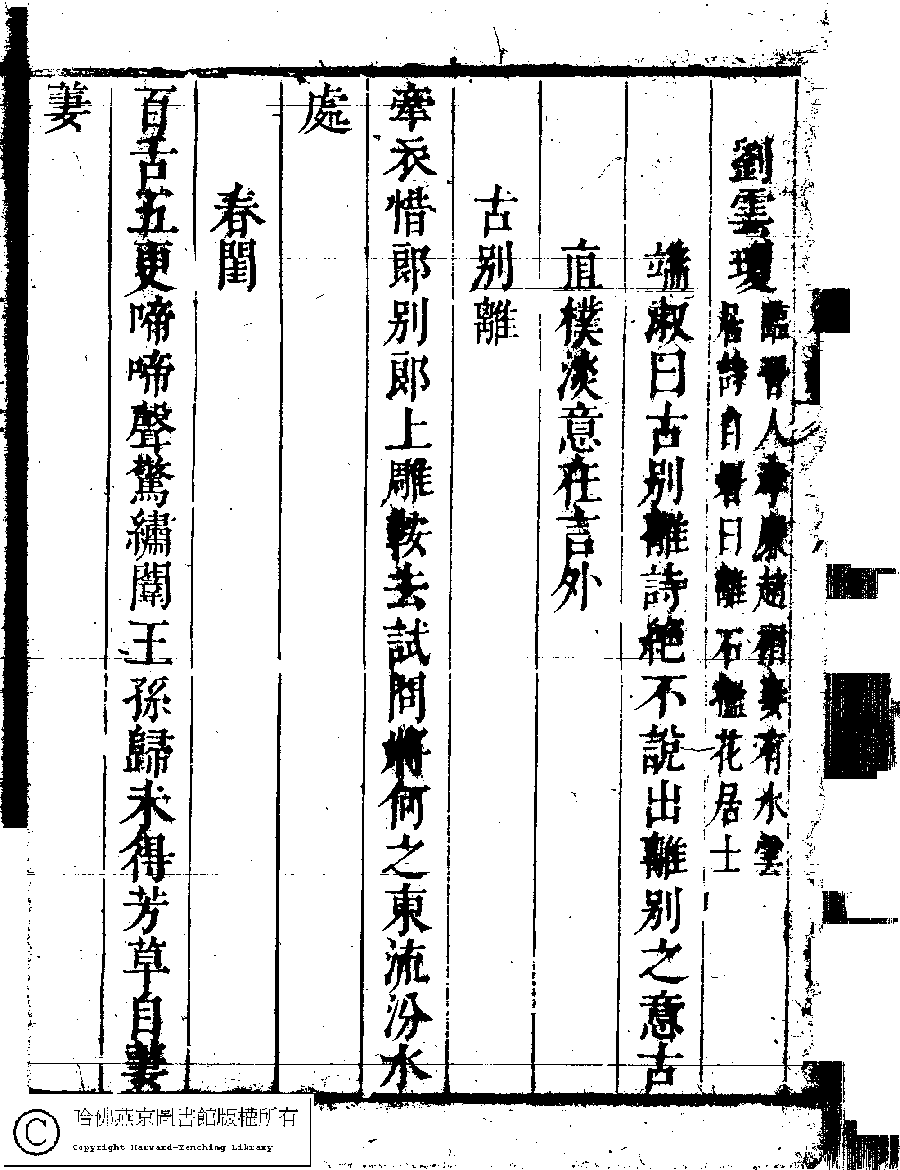 劉雲瓊
臨晉人孝廉趙 妻有水雲
居詩自署曰離石檻花居士
端淑曰古別離詩絕不說出離別之意古
直樸淡意在言外
古別離
牽衣惜郎別郎上雕鞍去試問將何之東流汾水
處
春閨
百舌五更啼啼聲驚繡闈王孫歸未得芳草自萋
萋
哈佛燕京圖書館版權所有
Copyright Harvard-Yenching Library